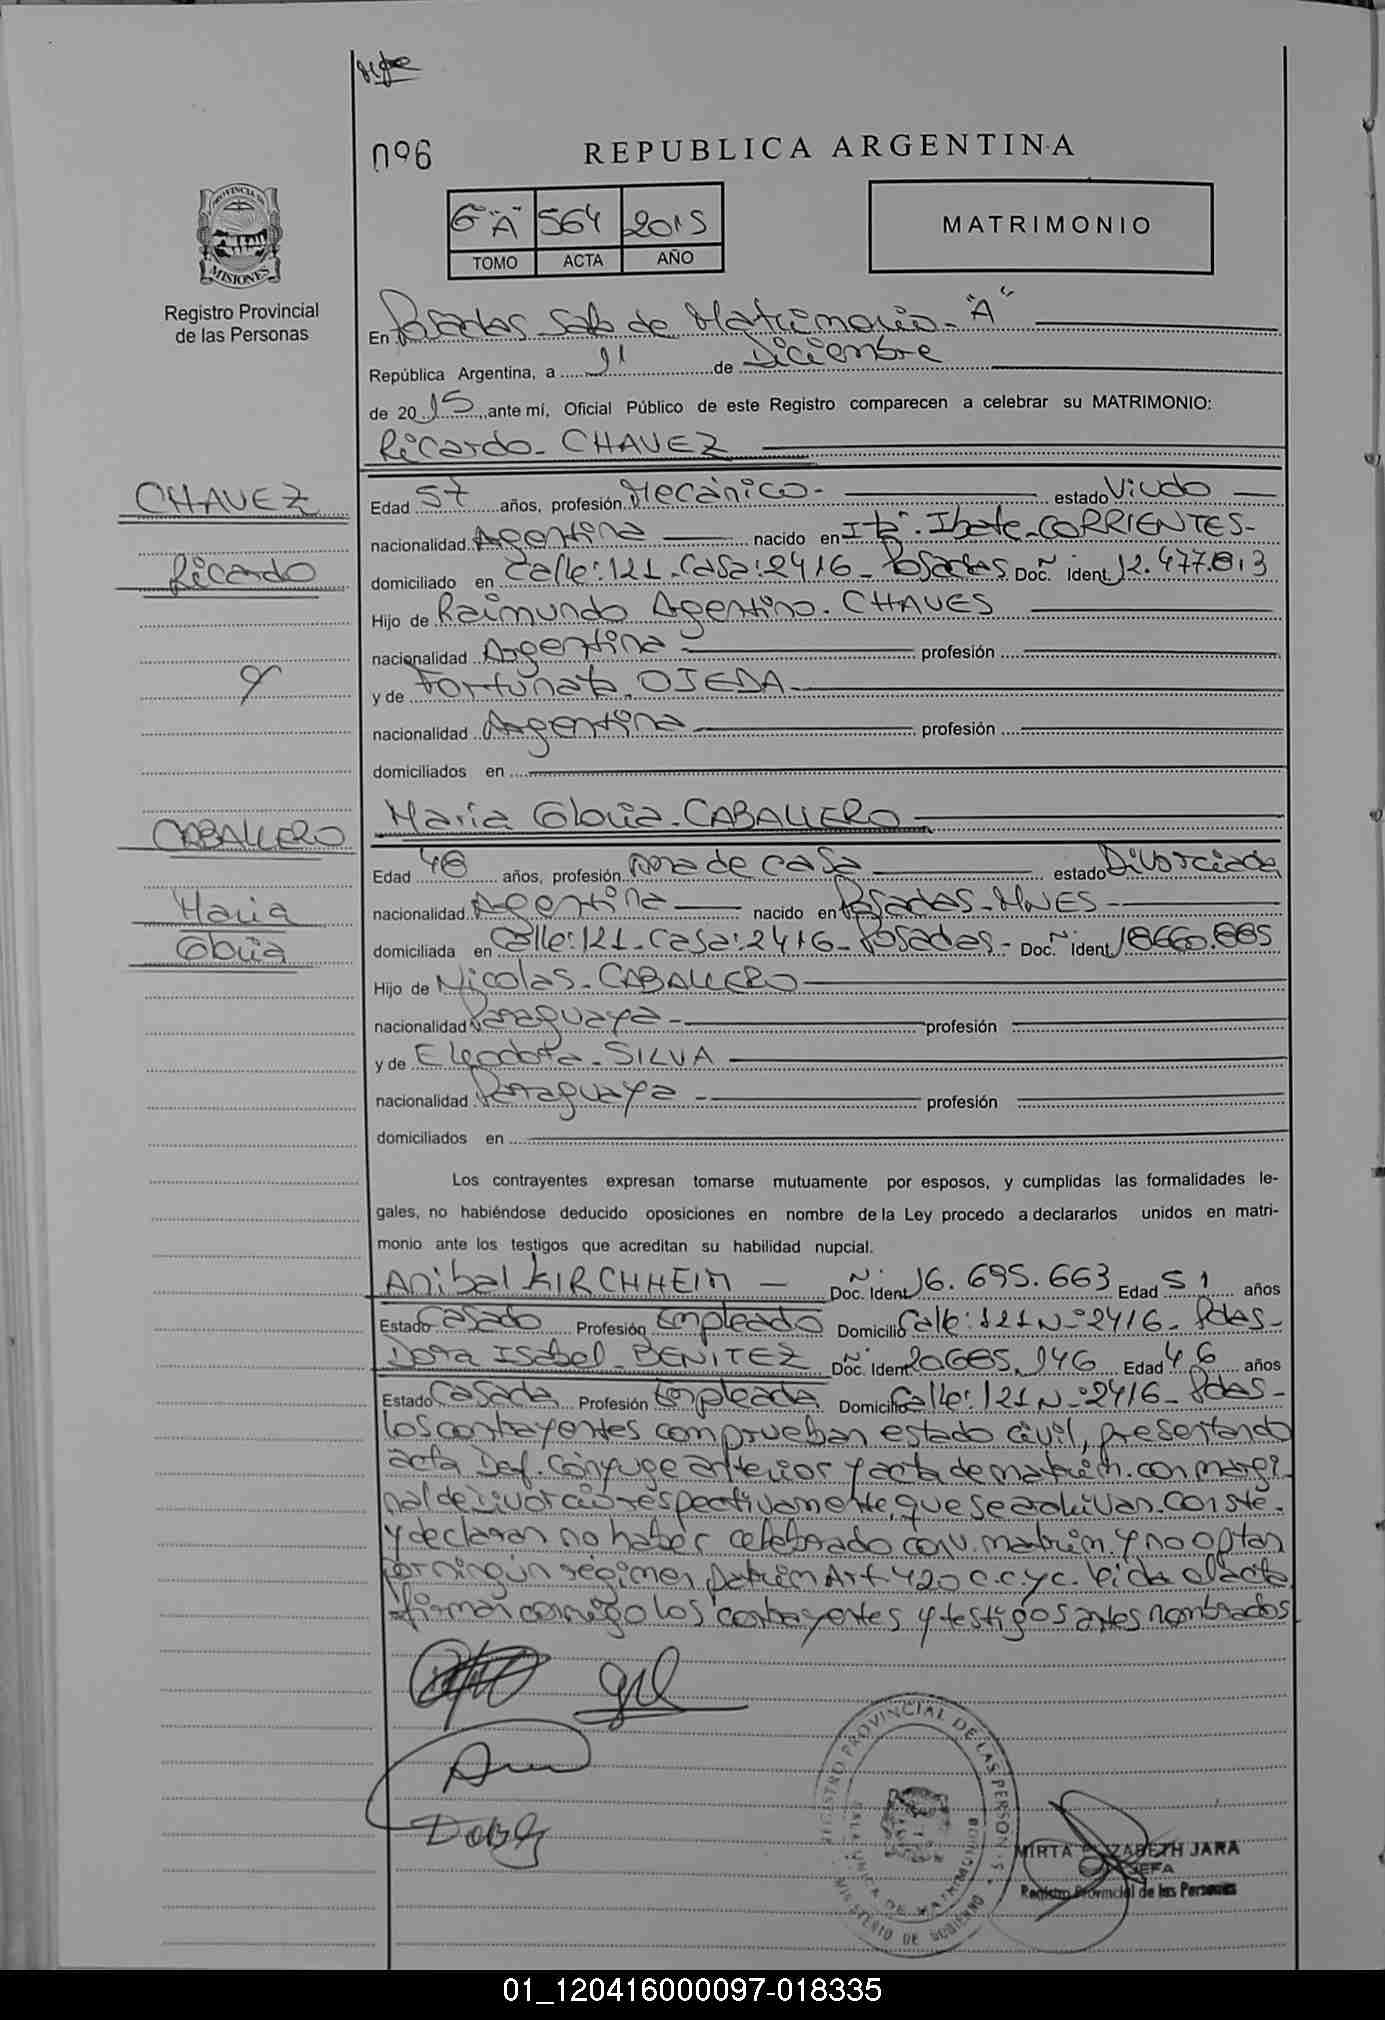 nº6
REPUBLICA ARGENTINA
PROVINCIA DE
MISIONES
Registro Provincial
de las Personas
6º "A" 564 2015
TOMO ACTA AÑO
MATRIMONIO
En Posadas Sala de Matrimonio - "A"
República Argentina, a 11 de Diciembre
de 2015, ante mí, Oficial Público de este Registro comparecen a celebrar su MATRIMONIO:
Ricardo - CHAVEZ
CHAVEZ
Ricardo
y
CABALLERO
Maria
Gloria
Edad 57 años, profesión Mecánico - estado Viudo
nacionalidad Argentina nacido en Itá - Ibate - CORRIENTES -
domiciliado en Calle: 121 - Casa: 2416 - Posadas Doc. Ident 12.477.813
Hijo de Raimundo Argentino - CHAVES
nacionalidad Argentina - profesión
y de Fortunata - OJEDA -
nacionalidad Argentina - profesión
domiciliados en
Maria Gloria - CABALLERO
Edad 48 años, profesión Ama de casa estado Divorciada
nacionalidad Argentina nacido en Posadas - MNES -
domiciliada en Calle: 121 - Casa: 2416 - Posadas - Doc. Ident 18660.885
Hijo de Nicolas - CABALLERO
nacionalidad Paraguaya - profesión
y de SILVA
nacionalidad Paraguaya - profesión
domiciliados en
Los contrayentes expresan tomarse mutuamente por esposos, y cumplidas las formalidades le-
gales, no habiéndose deducido oposiciones en nombre de la Ley procedo a declararlos unidos en matri-
monio ante los testigos que acreditan su habilidad nupcial.
Anibal KIRCHHEIM - Doc. Ident 16.695.663 Edad 51 años
Estado Casado Profesión Empleado Domicilio Calle: 121 Nº 2416 - Pdas -
Dora Isabel - BENITEZ Doc. Ident 20.685.946 Edad 46 años
Estado Casada Profesión Empleada Domicilio Calle: 121 Nº 2416 - Pdas -
los contrayentes comprueban estado civil, presentando
acta Def. Cónyuge anterior y acta de matrim. con margi-
nal de divorcio respectivamente, que se archivan. Conste -
y declaran no haber celebrado conv. matrim. y no optan
por ningún régimen patrim Art. 420 c.c.y c. leída el acta
firman conmigo los contrayentes y testigos antes nombrados
REGISTRO PROVINCIAL DE LAS PERSONAS
SALA UNICA DE MATRIMONIO
MINISTERIO DE GOBIERNO
MIRTA ELIZABETH JARA
JEFA
Registro Provincial de las Personas
01_120416000097-018335